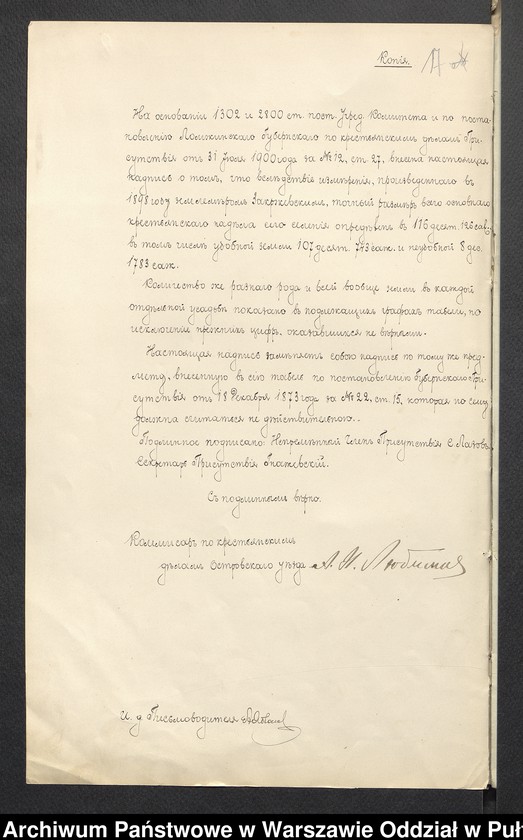 Копія.
На основаніи 1302 и 2800 ст. пост. Учред. Комитета и по поста-
новленію Ломжинскаго Губернскаго по крестьянскимъ дѣламъ При-
сутствія отъ 31 Іюля 1900 года за № 12, ст. 27, внесена настоящая
надпись о томъ, что вслѣдствіе измѣренія, произведеннаго въ
1898 году землемѣромъ Закржевскимъ, точный размѣръ всего основнаго
крестьянскаго надѣла сего селенія опредѣленъ въ 116 десят. 126 саж.
въ томъ числѣ удобной земли 107 десят. 743 саж. и неудобной 8 дес.
1783 саж.
Количество же разнаго рода и всей вообще земли въ каждой
отдѣльной усадьбѣ показано въ подлежащихъ графахъ табели, по
исключеніи прежнихъ цифръ, оказавшихся не вѣрными.
Настоящая надпись замѣняетъ собою надпись по тому же пред-
мету, внесенную въ сію табель по постановленію Губернскаго При-
сутствія отъ 18 Декабря 1873 года за № 22, ст. 15, которая по сему
должна считаться не дѣйствительною.
Подлинное подписано: Непремѣнный Членъ Присутствія С.
Секретарь Присутствія
Съ подлиннымъ вѣрно.
Коммисаръ по крестьянскимъ
дѣламъ Островскаго уѣзда
И. д. Письмоводителя
Archiwum Państwowe w Warszawie Oddział w Puł